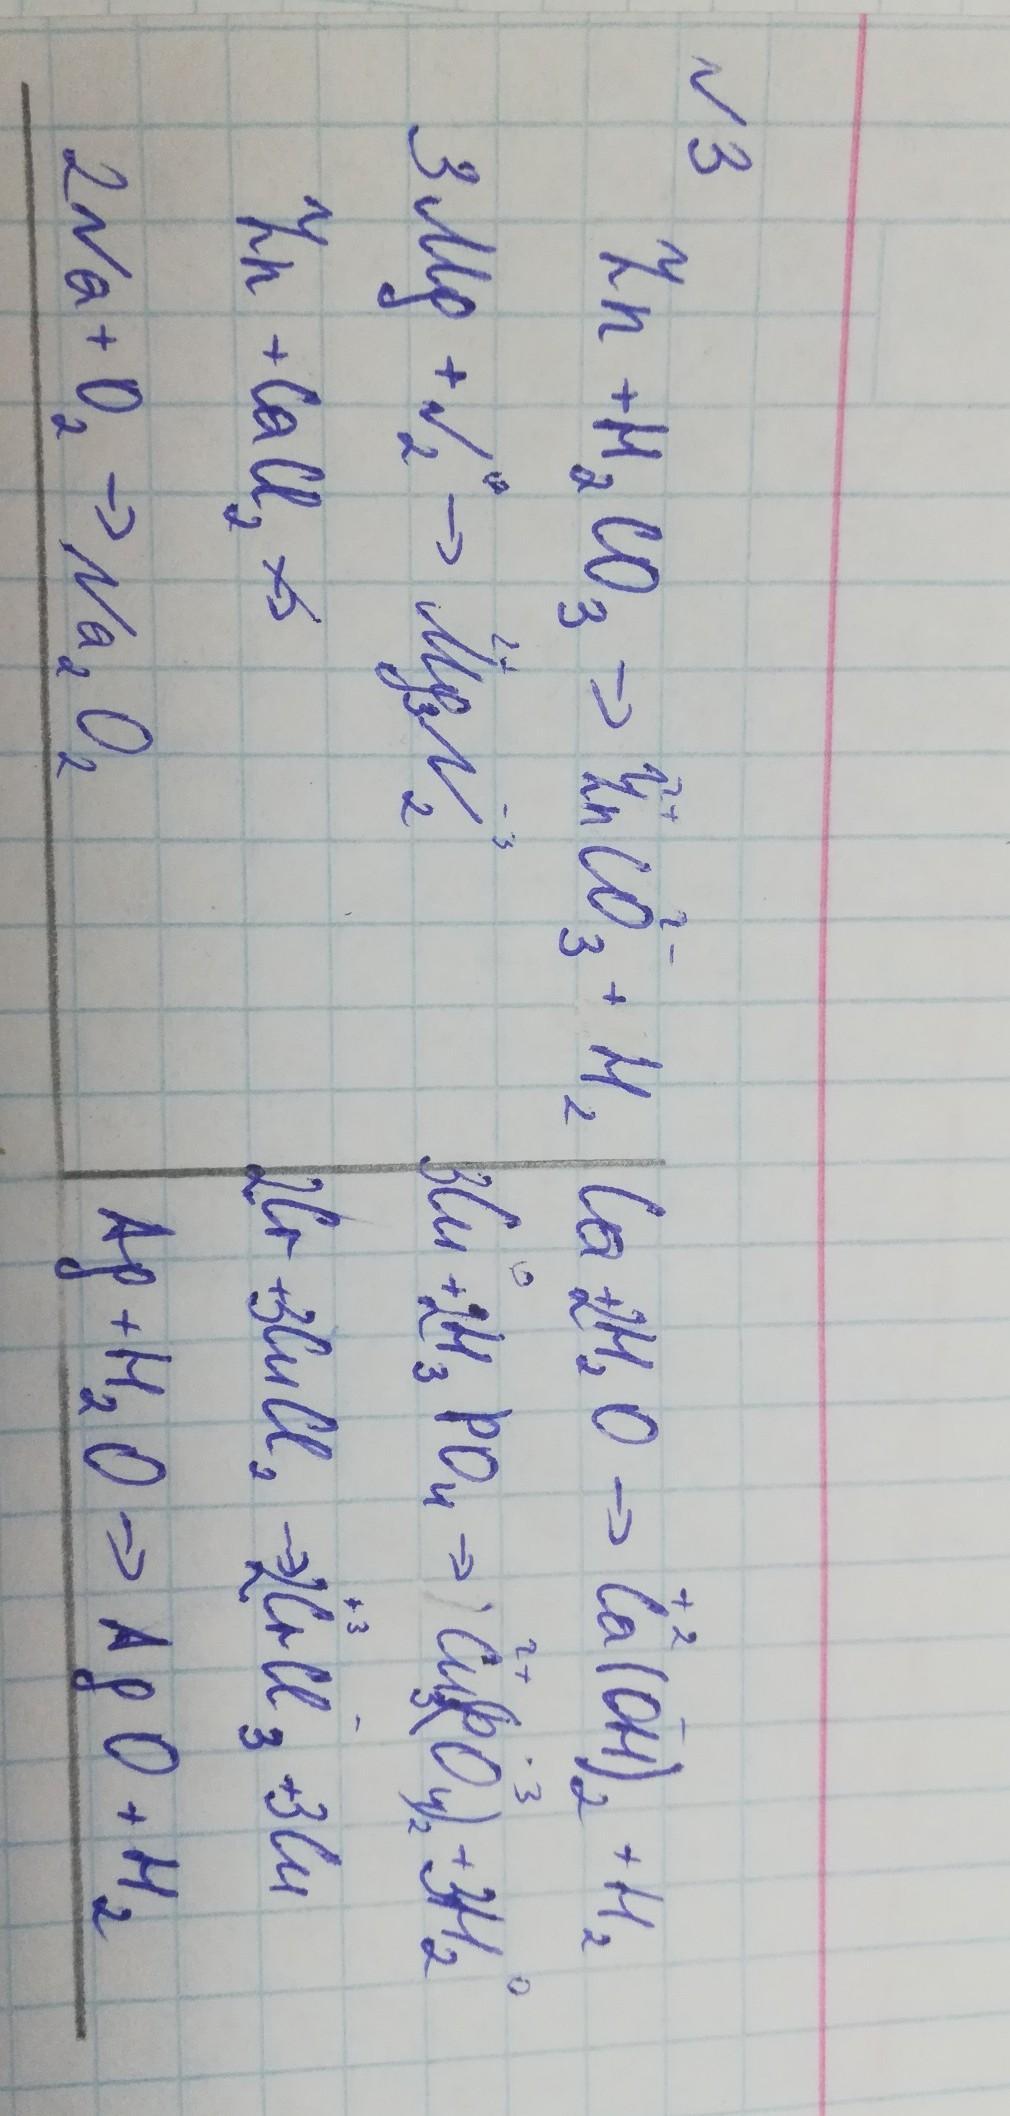 №3
Zn + H₂CO₃ → Zn²⁺CO₃²⁻ + H₂
3Mg + N₂⁰ → Mg₃²⁺N₂⁻³
Zn + CaCl₂ ↛
2Na + O₂ → Na₂O₂
Ca + 2H₂O → Ca⁺²(OH)₂⁻ + H₂
3Cu⁰ + 2H₃PO₄ → Cu₃²⁺(PO₄)₂⁻³ + 3H₂⁰
2Cr + 3CuCl₂ → 2Cr⁺³Cl₃⁻ + 3Cu
Ag + H₂O → AgO + H₂